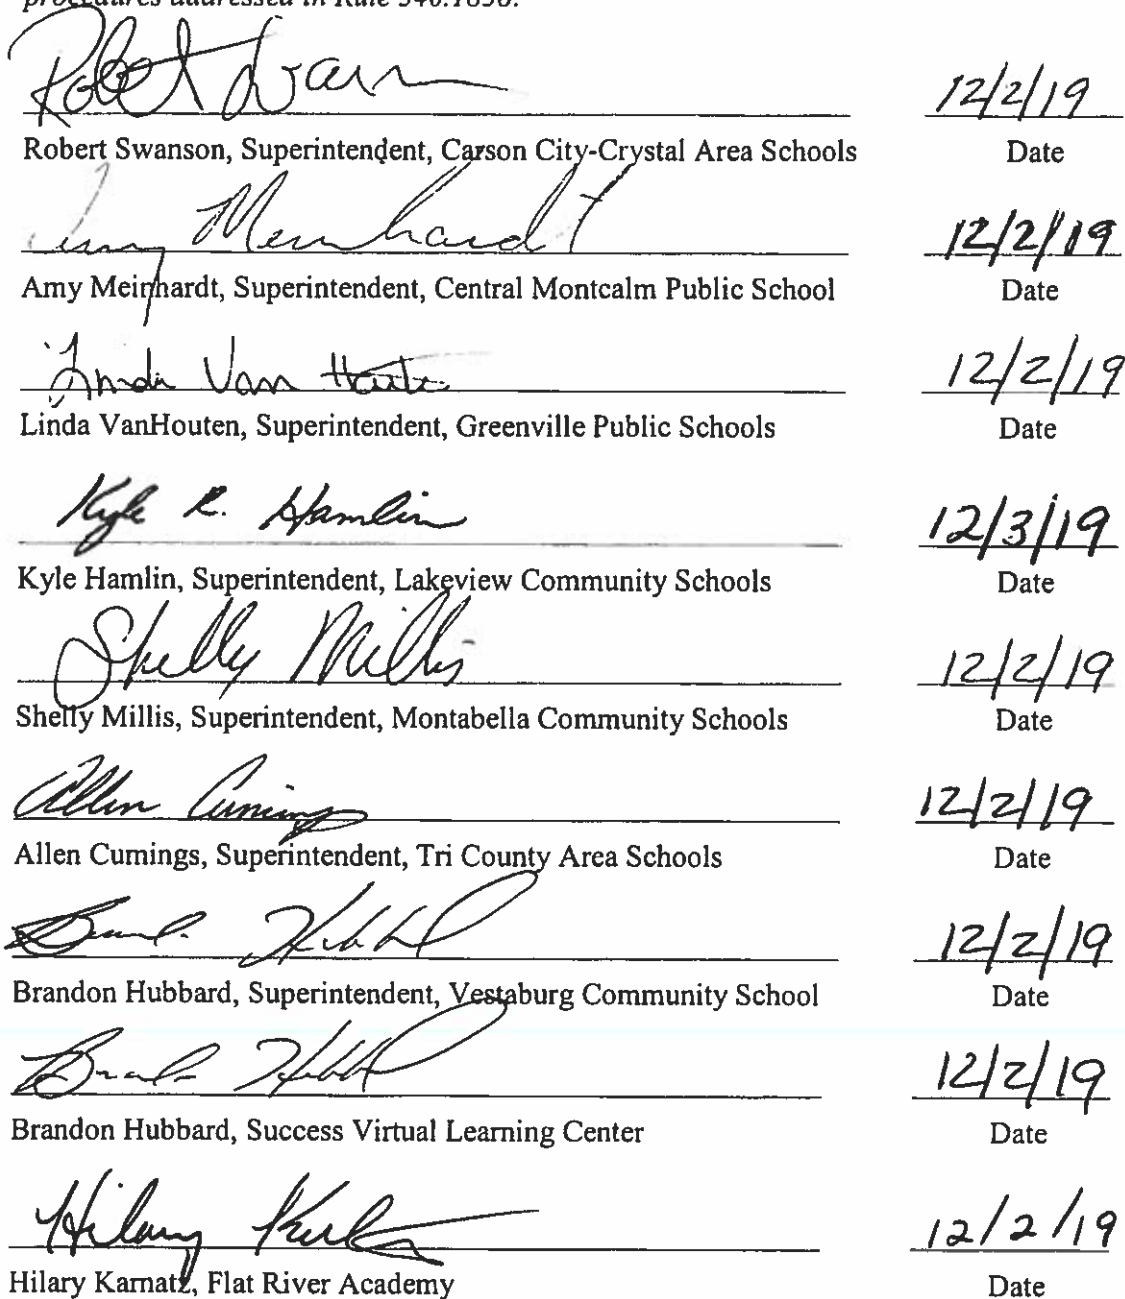 procedures addressed in Rule 340.1838.
Robert Swan 12/2/19
Robert Swanson, Superintendent, Carson City-Crystal Area Schools Date
Amy Meinhardt 12/2/19
Amy Meinhardt, Superintendent, Central Montcalm Public School Date
Linda Van Houten 12/2/19
Linda VanHouten, Superintendent, Greenville Public Schools Date
Kyle R. Hamlin 12/3/19
Kyle Hamlin, Superintendent, Lakeview Community Schools Date
Shelly Millis 12/2/19
Shelly Millis, Superintendent, Montabella Community Schools Date
Allen Cumings 12/2/19
Allen Cumings, Superintendent, Tri County Area Schools Date
12/2/19
Brandon Hubbard, Superintendent, Vestaburg Community School Date
12/2/19
Brandon Hubbard, Success Virtual Learning Center Date
Hilary 12/2/19
Hilary Karnatz, Flat River Academy Date